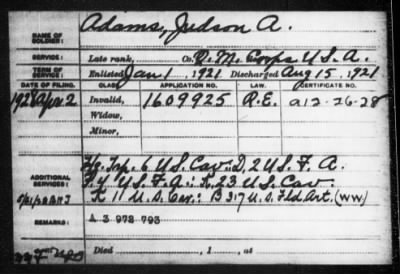 NAME OF SOLDIER: Adams, Judson A.
SERVICE: Late rank, Co. Q. M. Corps U.S.A.
TERM OF SERVICE: Enlisted Jan 1, 1921 Discharged Aug 15, 1921
DATE OF FILING. CLASS. APPLICATION NO. LAW. CERTIFICATE NO.
1928 Apr 2 Invalid, 1609925 R.E. a 12-26-28
Widow,
Minor,
Hq. Trp. 6 U.S. Cav: D, 2 U.S. F. A.
ADDITIONAL SERVICES: F. 4 U.S. F. A.: K. 23 U.S. Cav:
K 11 U.S. Cav: B 317 U.S. Fld Art. (WW)
REMARKS: A 3 972 793
Died , 1 , at